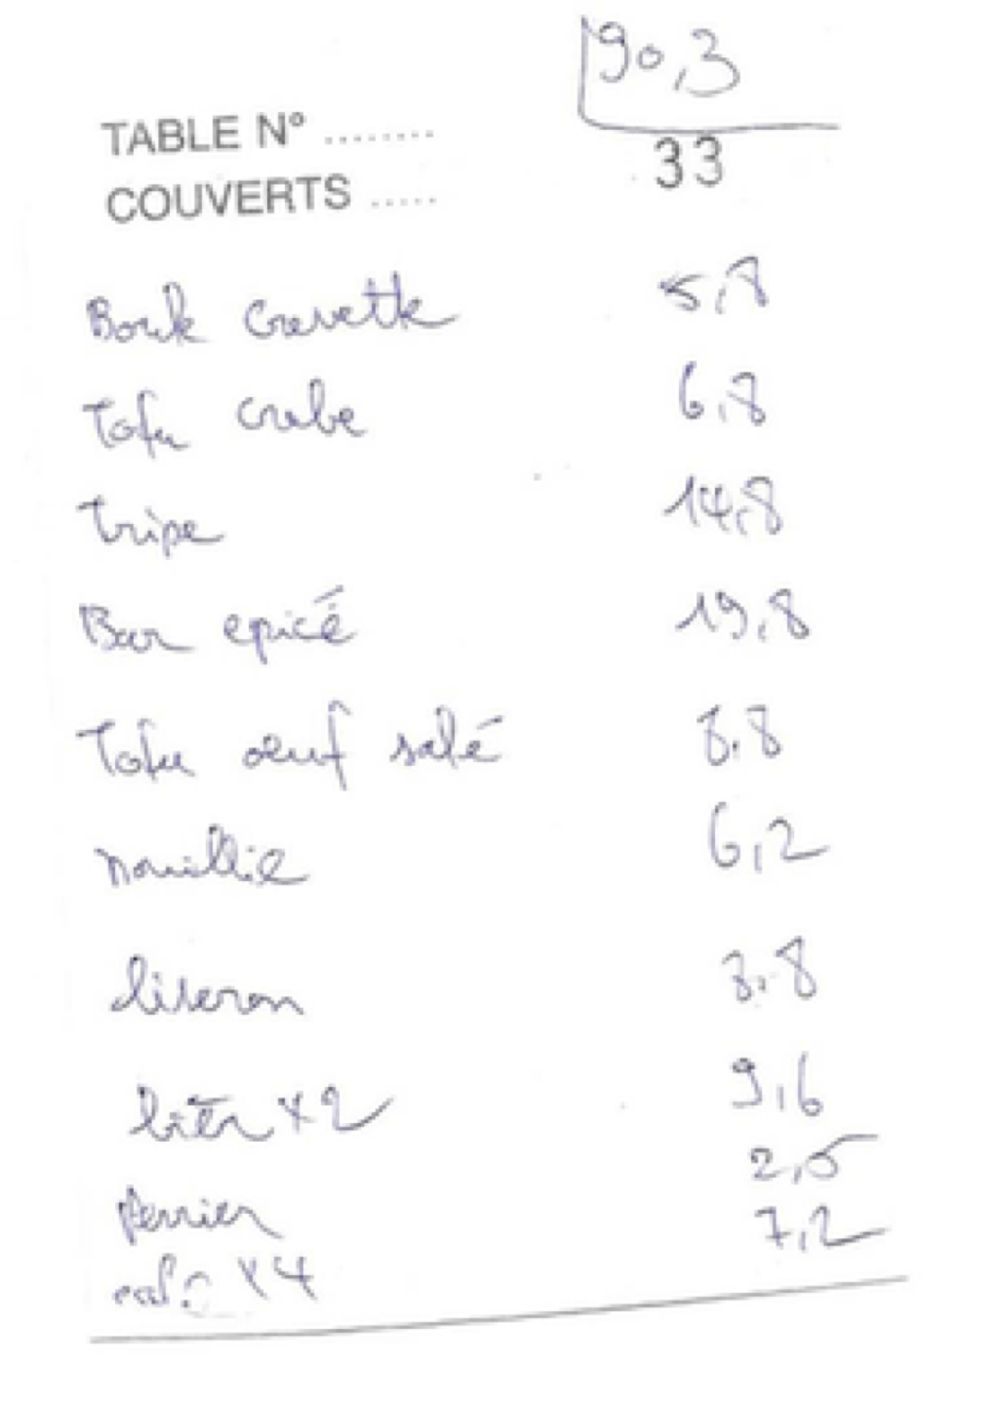 90,3
TABLE N° ........
33
COUVERTS .....
crevette 5,8
Tofu crabe 6,8
tripe 14,8
Bar epicé 19,8
Tofu oeuf salé 8,8
nouillie 6,2
liseron 8,8
bièr x2 9,6
Perrier 2,5
café x4 7,2